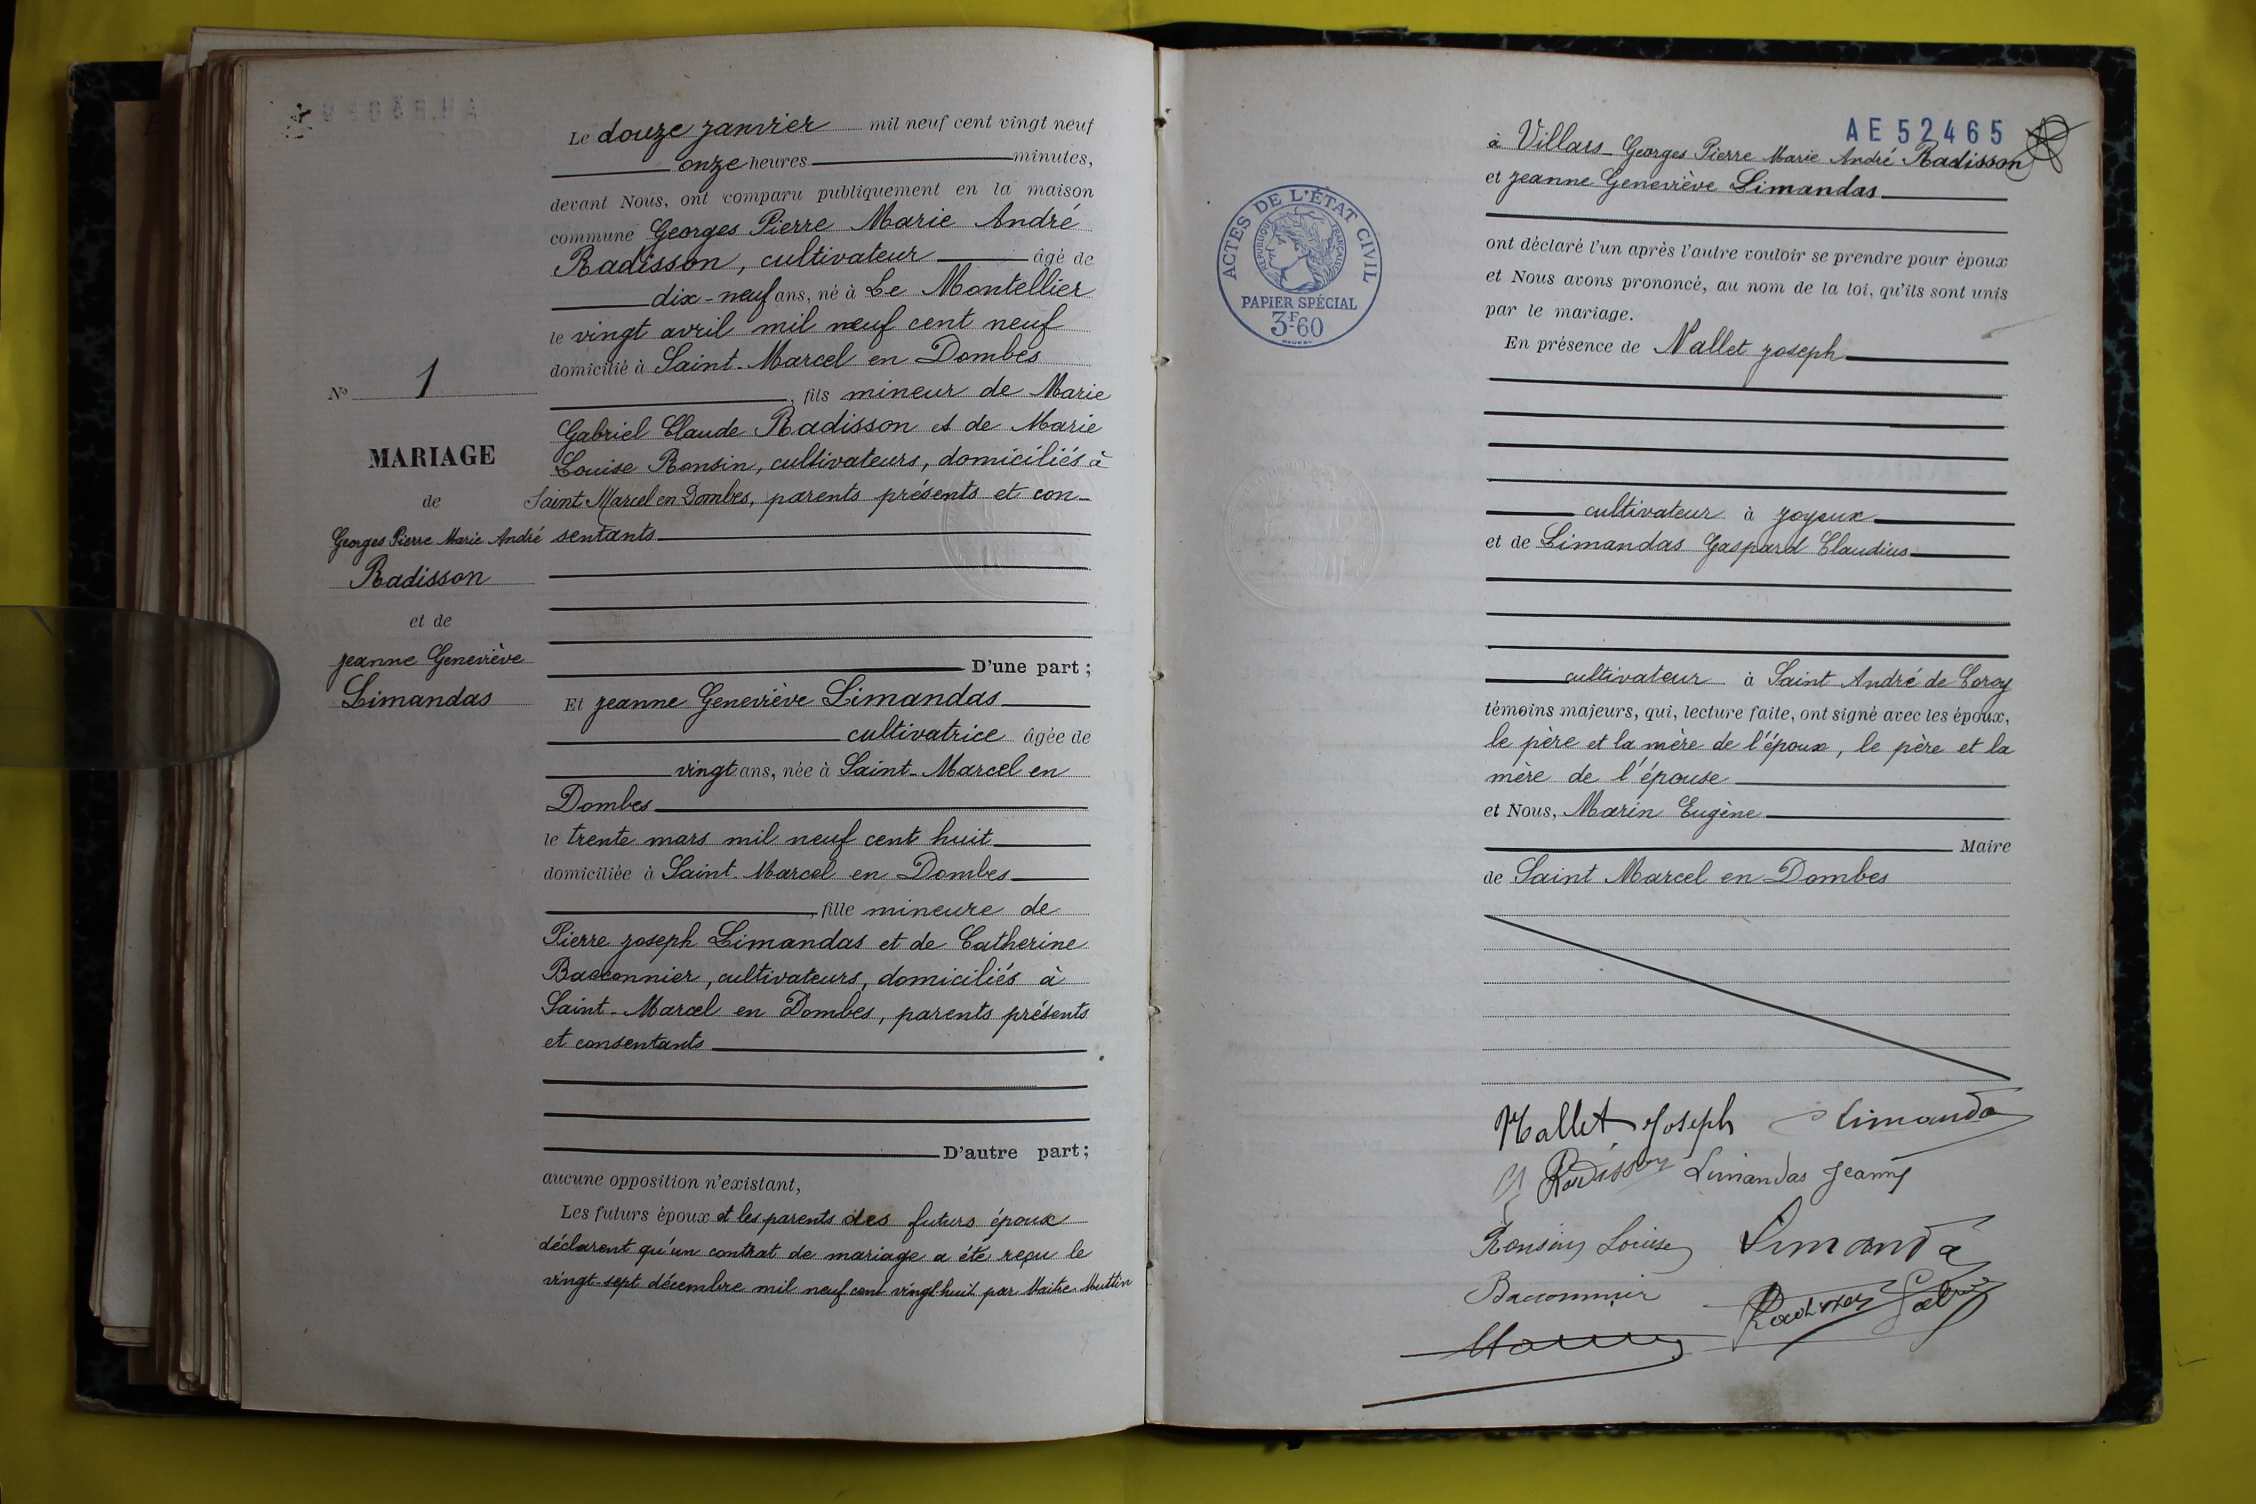 Le douze janvier mil neuf cent vingt neuf
onze heures minutes,
devant Nous, ont comparu publiquement en la maison
commune Georges Pierre Marie André
Radisson, cultivateur âgé de
dix-neuf ans, né à Le Montellier
le vingt avril mil neuf cent neuf
domicilié à Saint-Marcel en Dombes
, fils mineur de Marie
Gabriel Claude Radisson et de Marie
Louise Ronsin, cultivateurs, domiciliés à
Saint-Marcel en Dombes, parents présents et con-
sentants
D'une part ;
Et Jeanne Geneviève Limandas
cultivatrice âgée de
vingt ans, née à Saint-Marcel en
Dombes
le trente mars mil neuf cent huit
domiciliée à Saint-Marcel en Dombes
, fille mineure de
Pierre Joseph Limandas et de Catherine
Bacconnier, cultivateurs, domiciliés à
Saint-Marcel en Dombes, parents présents
et consentants
D'autre part ;
aucune opposition n'existant,
Les futurs époux et les parents des futurs époux
déclarent qu'un contrat de mariage a été reçu le
vingt-sept décembre mil neuf cent vingt-huit par Maitre Muttin
No 1
MARIAGE
de
Georges Pierre Marie André
Radisson
et de
Jeanne Geneviève
Limandas
AE 52465
à Villars Georges Pierre Marie André Radisson
et Jeanne Geneviève Limandas
ont déclaré l'un après l'autre vouloir se prendre pour époux
et Nous avons prononcé, au nom de la loi, qu'ils sont unis
par le mariage.
En présence de Nallet Joseph
cultivateur à Joyeux
et de Limandas Gaspard Claudius
cultivateur à Saint André de Corcy
témoins majeurs, qui, lecture faite, ont signé avec les époux,
le père et la mère de l'époux, le père et la
mère de l'épouse
et Nous, Marin Eugène
Maire
de Saint Marcel en Dombes
ACTES DE L'ÉTAT CIVIL
RÉPUBLIQUE FRANÇAISE
PAPIER SPÉCIAL
3F60
Nallet Joseph Limanda
G Radisson Limandas Jeanne
Ronsin Louise Limanda
Bacconnier Radisson Gabriel
Marin